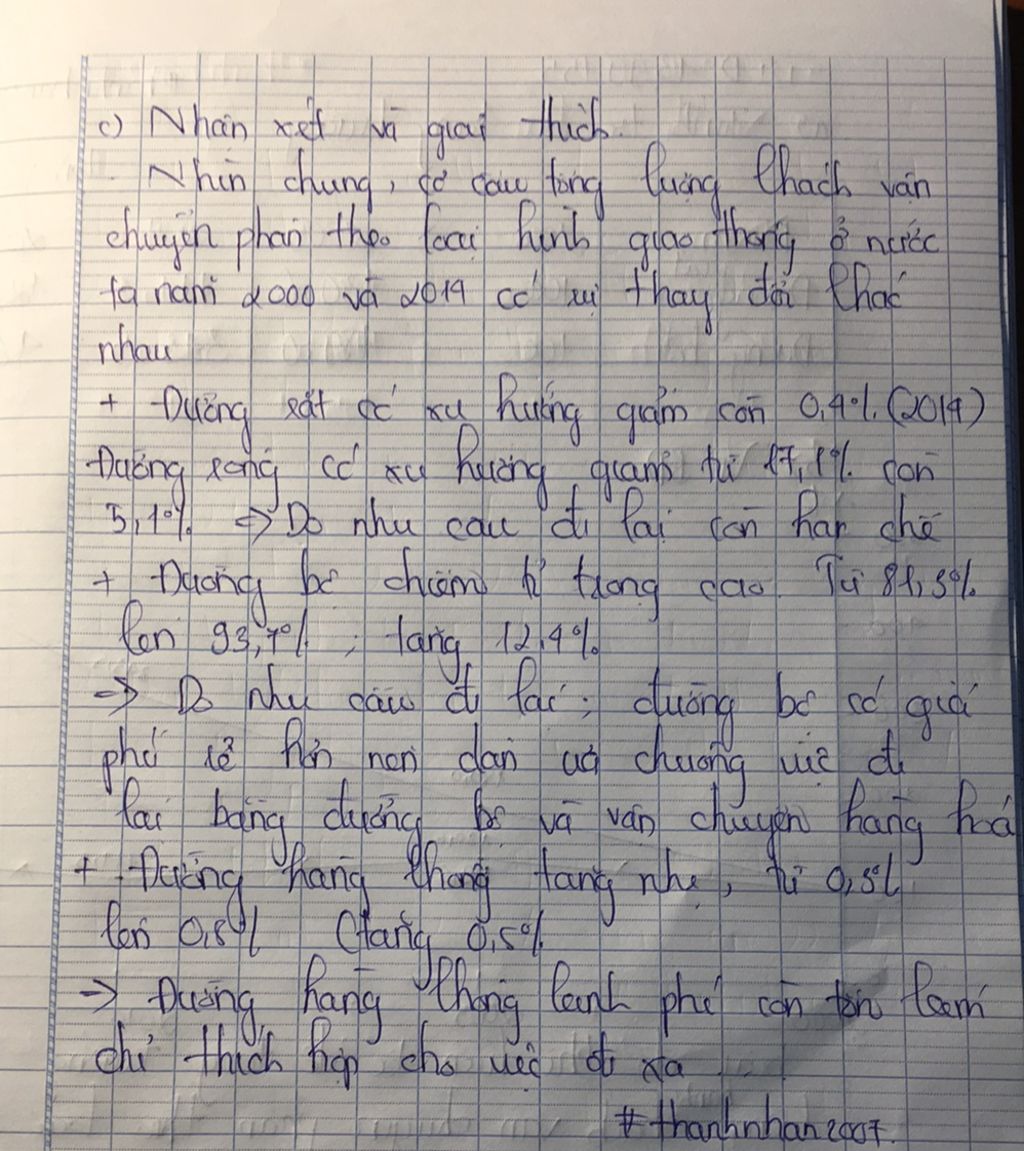 c) Nhận xét và giải thích.
- Nhìn chung, cơ cấu tổng lượng khách vận
chuyển phân theo loại hình giao thông ở nước
ta năm 2000 và 2014 có sự thay đổi khác
nhau
+ Đường sắt có xu hướng giảm còn 0,4% (2014)
Đường sông có xu hướng giảm từ 17,1% còn
5,1% => Do nhu cầu đi lại còn hạn chế
+ Đường bộ chiếm tỉ trọng cao. Từ 81,3%
lên 93,7% ; tăng 12,4%
=> Do nhu cầu đi lại ; đường bộ có giá
phí rẻ hơn nên dân ưa chuộng việc đi
lại bằng đường bộ và vận chuyển hàng hoá
+ Đường hàng không tăng nhẹ, từ 0,3%
lên 0,8% (tăng 0,5%
=> Đường hàng không kinh phí còn tốn kém
chỉ thích hợp cho việc đi xa
#thanhnhan2007.